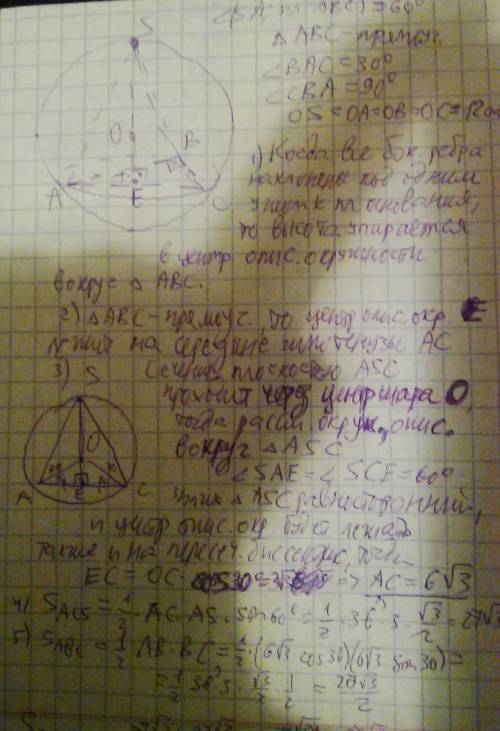 S
∠(SA; пл. ABC) = 60°
△ ABC - прямоуг.
∠BAC = 30°
∠CBA = 90°
OS = OA = OB = OC = R
O
B
A
E
C
1) Когда все бок. ребра
наклонены под одним
углом к пл основания,
то высота упирается
в центр опис. окружности
вокруг △ ABC.
2) △ABC - прямоуг., то центр опис. окр. E
лежит на середине гипотенузы AC
3) Сечение плоскостью ASC
S
проходит через центр шара O,
тогда рассм. окруж. опис.
вокруг △ ASC
O
A
E
C
∠SAE = ∠SCE = 60°
значит △ ASC равносторонний,
и центр опис. окр будет лежать
также и на пересеч. биссектрис, тогда
EC = OC · cos 30 = => AC = 6√3
4) S ACS = 1/2 · AC · AS · sin 60° = 1/2 · 36 · 3 · √3/2 = 27√3
5) S ABC = 1/2 AB · BC = 1/2 · (6√3 · cos 30)(6√3 · sin 30) =
= 1/2 · 36 · 3 · √3/2 · 1/2 = 27√3/2